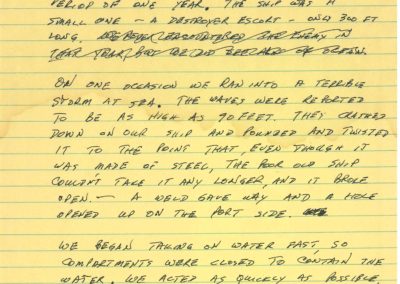 PERIOD OF ONE YEAR. THE SHIP WAS A
SMALL ONE — A DESTROYER ESCORT — ONLY 300 FT
LONG.
ON ONE OCCASION WE RAN INTO A TERRIBLE
STORM AT SEA. THE WAVES WERE REPORTED
TO BE AS HIGH AS 90 FEET. THEY CRASHED
DOWN ON OUR SHIP AND POUNDED AND TWISTED
IT TO THE POINT THAT EVEN THOUGH IT
WAS MADE OF STEEL, THE POOR OLD SHIP
COULDN'T TAKE IT ANY LONGER, AND IT BROKE
OPEN. — A WELD GAVE WAY AND A HOLE
OPENED UP ON THE PORT SIDE.
WE BEGAN TAKING ON WATER FAST, SO
COMPARTMENTS WERE CLOSED TO CONTAIN THE
WATER. WE ACTED AS QUICKLY AS POSSIBLE,